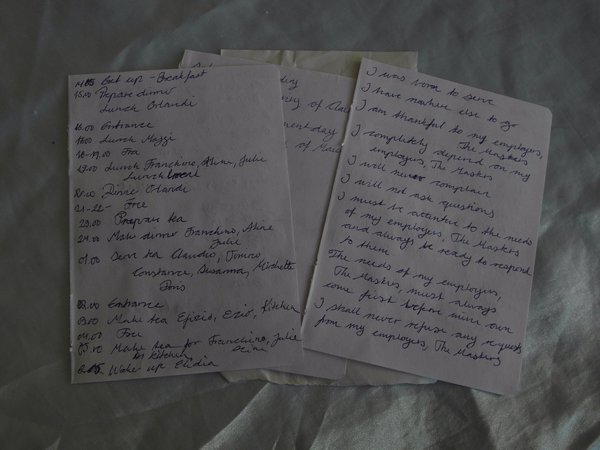 14.05 Get up - Breakfast
15.00 Prepare dinner
Lunch Orlandi
16.00 Entrance
17.00 Lunch Mazzi
18-19.00 Free
19.00 Lunch Franchino, Aline, Julie
Lunch
21.00 Dinner Orlandi
21-22- Free
23.00 Prepare tea
24.00 Make dinner Franchino, Aline
Julie
01.00 Serve tea Claudio,
Constance, Susanna, Michette
Doris
02.00 Entrance
03.00 Make tea Efizio, Ezio, Kitchen
04.00 Free
05.00 Make tea for Franchino, Julie
in kitchen, Aline
Wake up Elidia
of
day
of
I was born to serve
I have nowhere else to go
I am thankful to my employers,
The Maskers
I completely depend on my
employers, The Maskers
I will never complain
I will not ask questions
I must be attentive to the needs
of my employers, The Maskers
and always be ready to respond
to them
The needs of my employers,
The Maskers, must always
come first before mine own
I shall never refuse any requests
from my employers, The Maskers